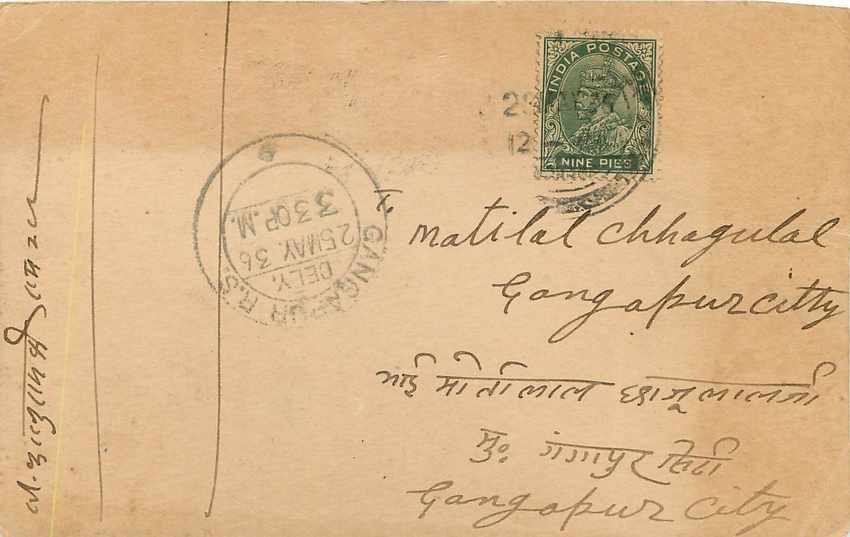 INDIA POSTAGE
NINE PIES
12
GANGAPUR R.S.
DELY.
25 MAY. 36
3 30 P.M.
Matilal Chhagulal
Gangapurcitty
भाई मोतीलाल छाजूलालजी
मु: गंगापुर सीटी
Gangapur City